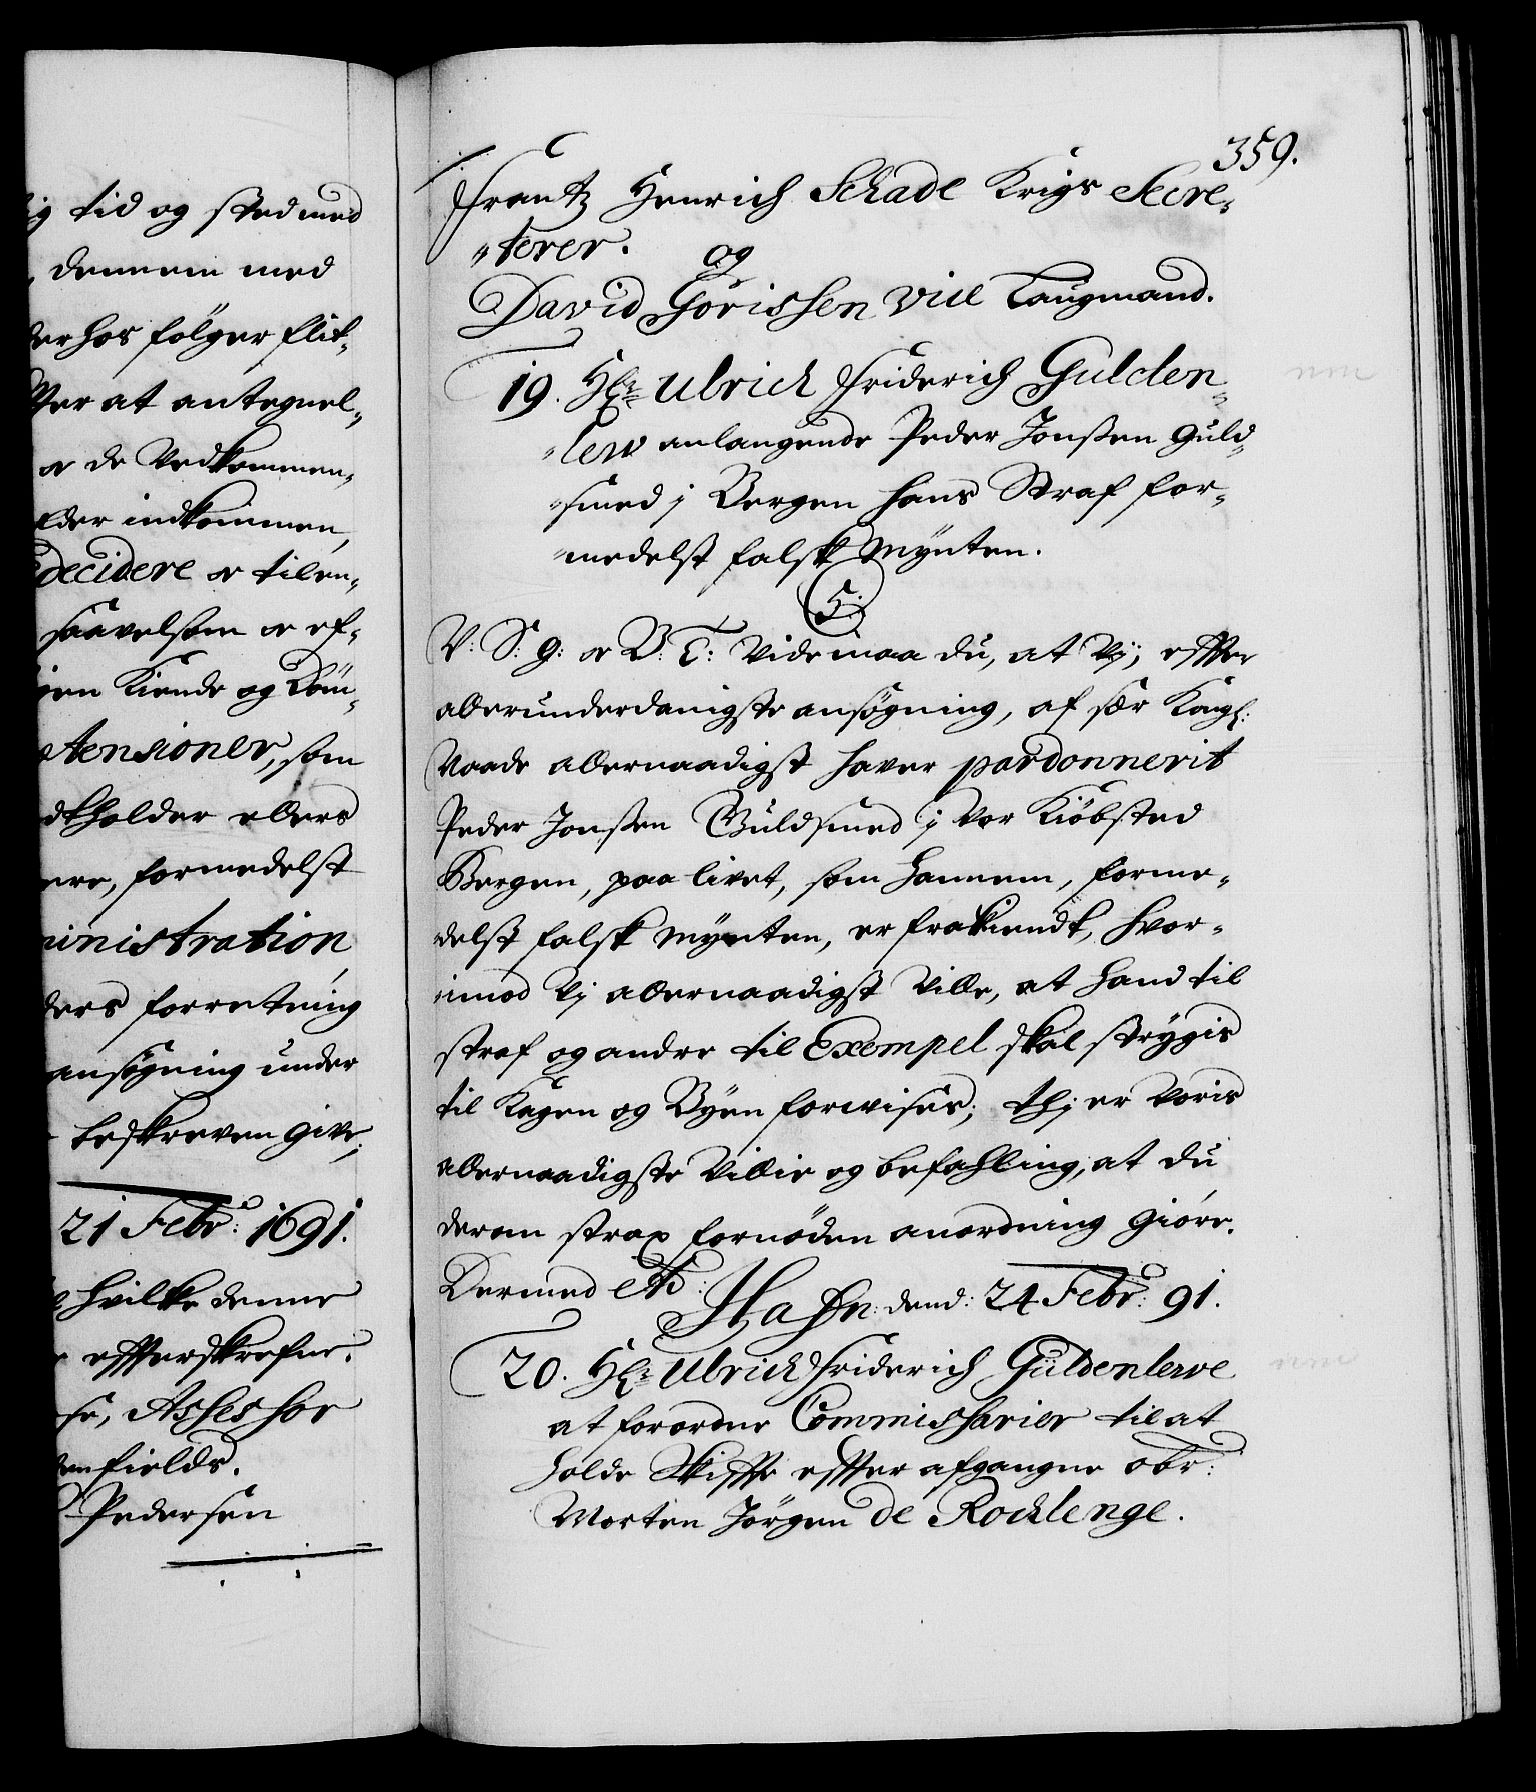 ig tid og sted med
dennem med
derhos følger flit-
ter at antegnel-
or de Vedkommen-
elder indkommen,
decidere or tilen-
saavelsom er ef-
igen Kiende og Döm-
tensioner, som
dtholder ellers
ere, formedelst
ministration
ders forretning
ansøgning under
beskreven give,
21 Febr: 1691.
hvilke denne
effterskrefne.
se, Assessor
enfields.
Pedersen
359.
Frantz Henrich Schade Krigs Secre-
-terer. og
David Görissen vice Laugmand.
19. Hr: Ulrich Friderich Gulden-
-lew anlangende Peder Jonßen Guld-
-smed i Bergen hans Straf for-
-medelst falsk Mynten.
C5.
V: S: G: or B: T: Vide maa du, at Vj, effter
allerunderdanigste ansøgning, af sær Kongl:
Naade allernaadigst haver pardonnerit
Peder Jonßen Guldsmed i Vor Kiöbsted
Bergen, paa livet, som hannem, forme-
delst falsk Mynten, er frakiendt, hvor-
-imod Vj allernaadigst Ville, at hand til
straf og andre til Exempel skal strygis
til Kagen og Byen forvises; thj er Voris
allernaadigste Villie og befahling, at du
derom strax fornøden anordning giöre.
Dermed etc: Hafn: dend: 24 Febr: 91.
20. Hr: Ulrich Friderich Güldenlewe
at forordne Commissarier til at
holde Skiffte effter afgangne obr:
Morten Jörgen de Rochlenge.